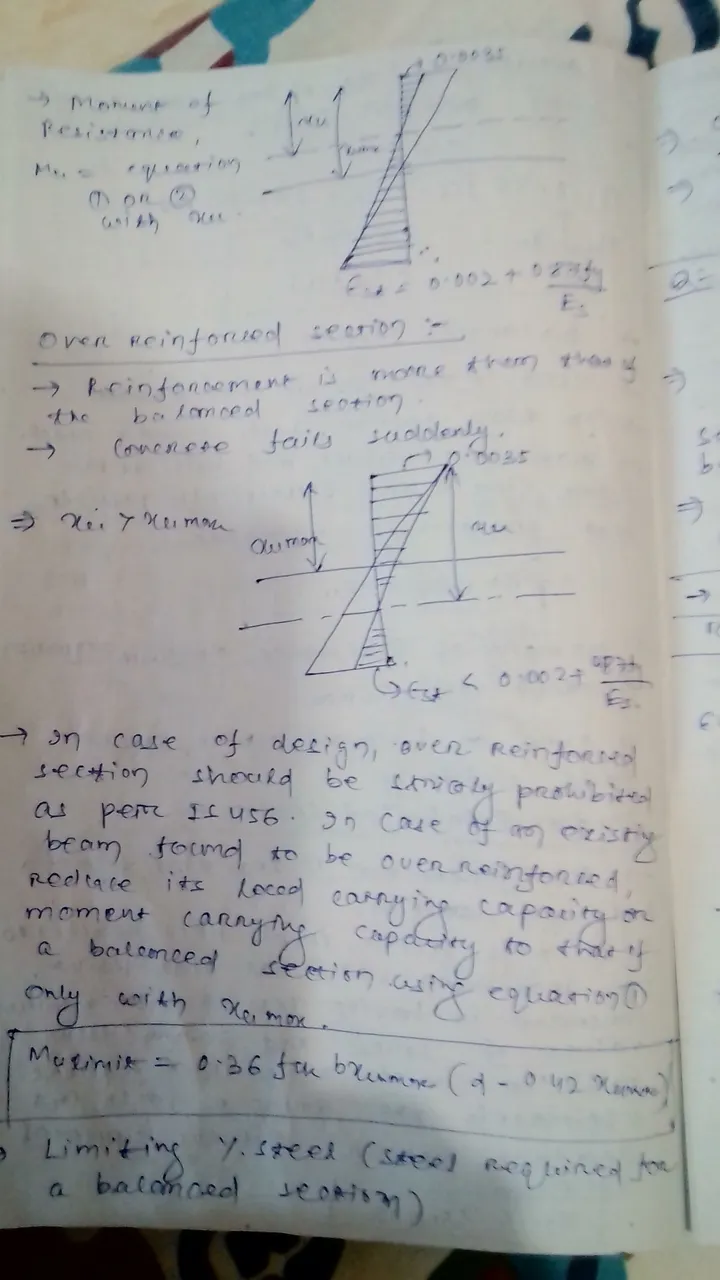 0.0035
→ Moment of
Resistance,
Mu = equation
① or ②
with xu.
xu
xumax
Est = 0.002 + 0.87fy
Es
Over reinforced section :-
→ Reinforcement is more than that of
the balanced section.
→ Concrete fails suddenly.
0.0035
⇒ xu > xumax
xumax
xu
Est < 0.002 + 0.87fy
Es
→ In case of design, over reinforced
section should be strictly prohibited
as per IS 456. In case of an existing
beam found to be over reinforced,
reduce its load carrying capacity or
moment carrying capacity to that of
a balanced section using equation ①
only with xumax.
Mulimit = 0.36 fck bxumax (d - 0.42 xumax)
Limiting %. steel (steel required for
a balanced section)